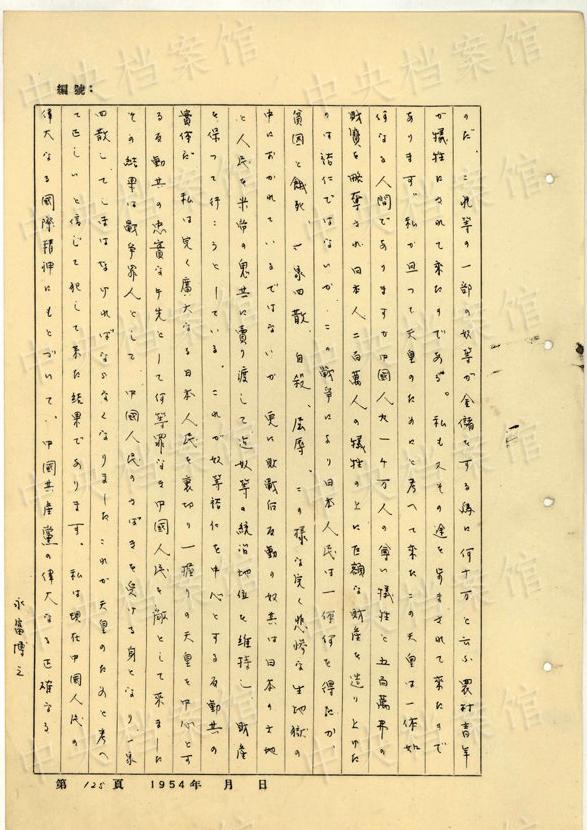 編號:
のだ、これ等の一部の奴等が金儲をする為に何十万と云ふ農村青年
が犠牲にされて来たのである。私も又その途を歩まされて来たので
あります。私が思つて天皇のためにと考へて来たこの天皇は一体如
何なる人間でありますか中國人民一千万人の尊い犠牲と五百萬弗の
財寶を略奪され日本人二百萬人の犠牲の上に巨額な財産を造り上げた
のは裕仁ではないか、この戦争により日本人民は一体何を得たか、
貧困と餓死、一家四散、自殺、屈辱、この様な完く悲惨な生地獄の
中におかれているではないか 更に敗戦后反動の奴共は日本の土地
と人民を米帝の鬼共に賣り渡して迄奴等の統治地位を維持し、財産
を保つて行こうとしている。これが奴等裕仁を中心とする反動共の
實体だ 私は完く廣大なる日本人民を裏切り一握りの天皇を中心とす
る反動共の忠實な手先として何等罪なき中國人民を敵として来ました
その結果は戦争罪人として 中國人民のつばきを受ける身となり、一家
四散してしまはなければならなくなりました これが天皇のためと考へ
て正しいと信じて犯して来た結果であります。私は現在中國人民の
偉大なる國際精神にもとづいて、中國共産黨の偉大なる正確なる
永富博之
第 125 頁 1954年 月 日
中央档案馆